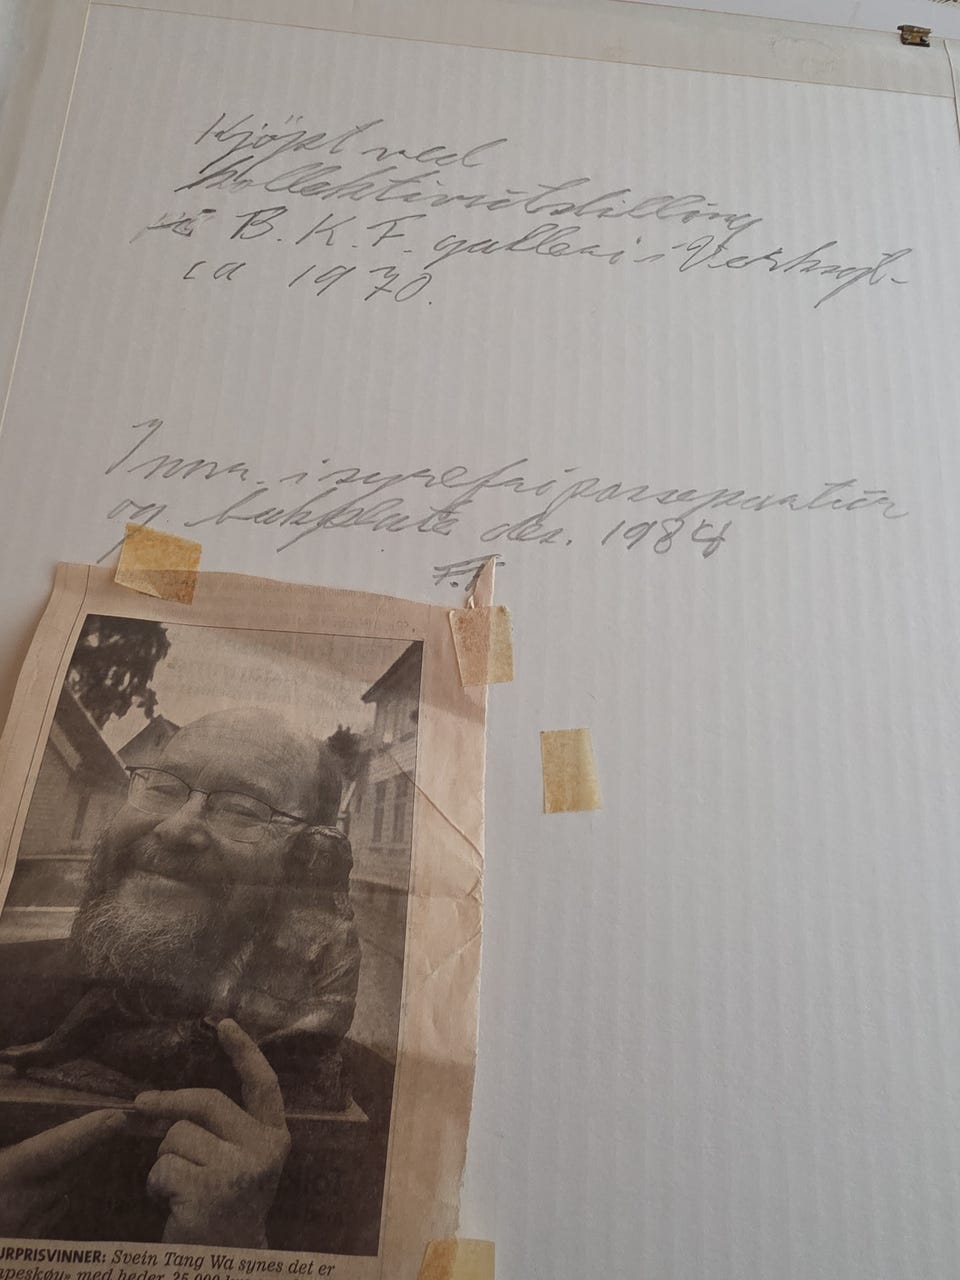 Kjöpt ved
kollektivutstilling
på B.K.F. galleri i Verksgt.
ca 1970.
Innr. i syrefri passepartür
og bakplate des. 1984
F.T
URPRISVINNER: Svein Tang Wa synes det er
apeskøy» med heder, 25.000